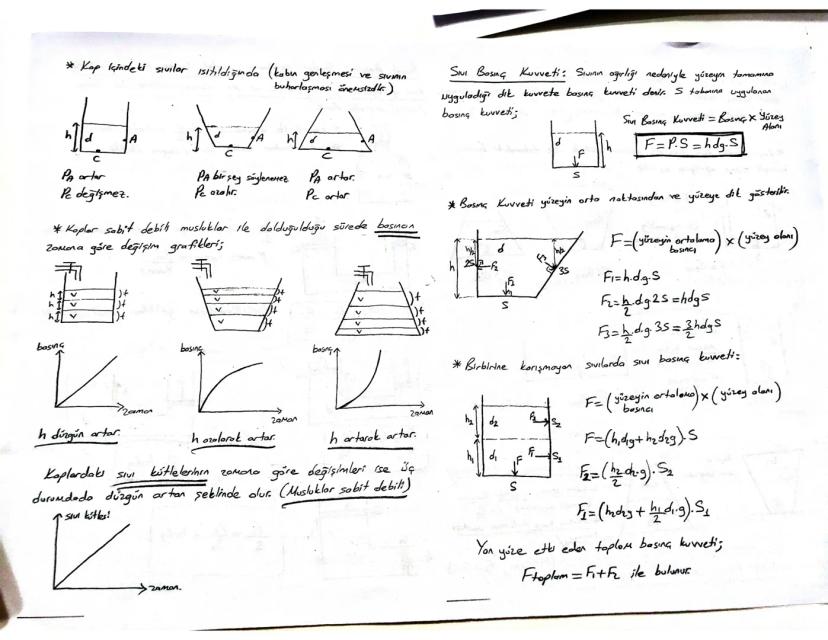 * Kap içindeki sıvılar ısıtıldığında (kabın genleşmesi ve sıvının
buharlaşması önemsizdir.)
h d A C
h d A C
h d A C
PA artar
PC değişmez.
PA bir şey söylenemez
PC azalır.
PA artar.
PC artar
* Kaplar sabit debili musluklar ile dolduğulduğu sürede basıncın
zamana göre değişim grafikleri;
h h h V V V V )t )t )t
V V V V )t )t )t )t
V V V V )t )t )t )t
basınç zaman
basınç zaman
basınç zaman
h düzgün artar.
h azalarak artar.
h artarak artar.
Kaplardaki sıvı kütlelerinin zamana göre değişimleri ise üç
durumdada düzgün artan şeklinde olur. (Musluklar sabit debili)
sıvı kütlesi
zaman.
Sıvı Basınç Kuvveti: Sıvının ağırlığı nedeniyle yüzeyin tamamına
uyguladığı dik kuvvete basınç kuvveti denir. S tabanına uygulanan
basınç kuvveti;
d F h S
Sıvı Basınç Kuvveti = Basınç x Yüzey
Alanı
F = P.S = hdg.S
* Basınç Kuvveti yüzeyin orta noktasından ve yüzeye dik gösterilir.
h h/2 d 2S F2 F1 F3 h/2 3S S
F = (yüzeyin ortalama basıncı) x (yüzey alanı)
F1 = h.d.g.S
F2 = h/2 .d.g 2S = hdgS
F3 = h/2 .d.g. 3S = 3/2 hdgS
* Birbirine karışmayan sıvılarda sıvı basınç kuvveti:
h2 d2 F2 S2
h1 d1 F F1 S1
S
F = (yüzeyin ortalama basıncı) x (yüzey alanı)
F = (h1d1g + h2d2g).S
F2 = (h2/2 d2.g).S2
F1 = (h2d2g + h1/2 d1.g).S1
Yan yüze etki eden toplam basınç kuvveti;
Ftoplam = F1 + F2 ile bulunur.